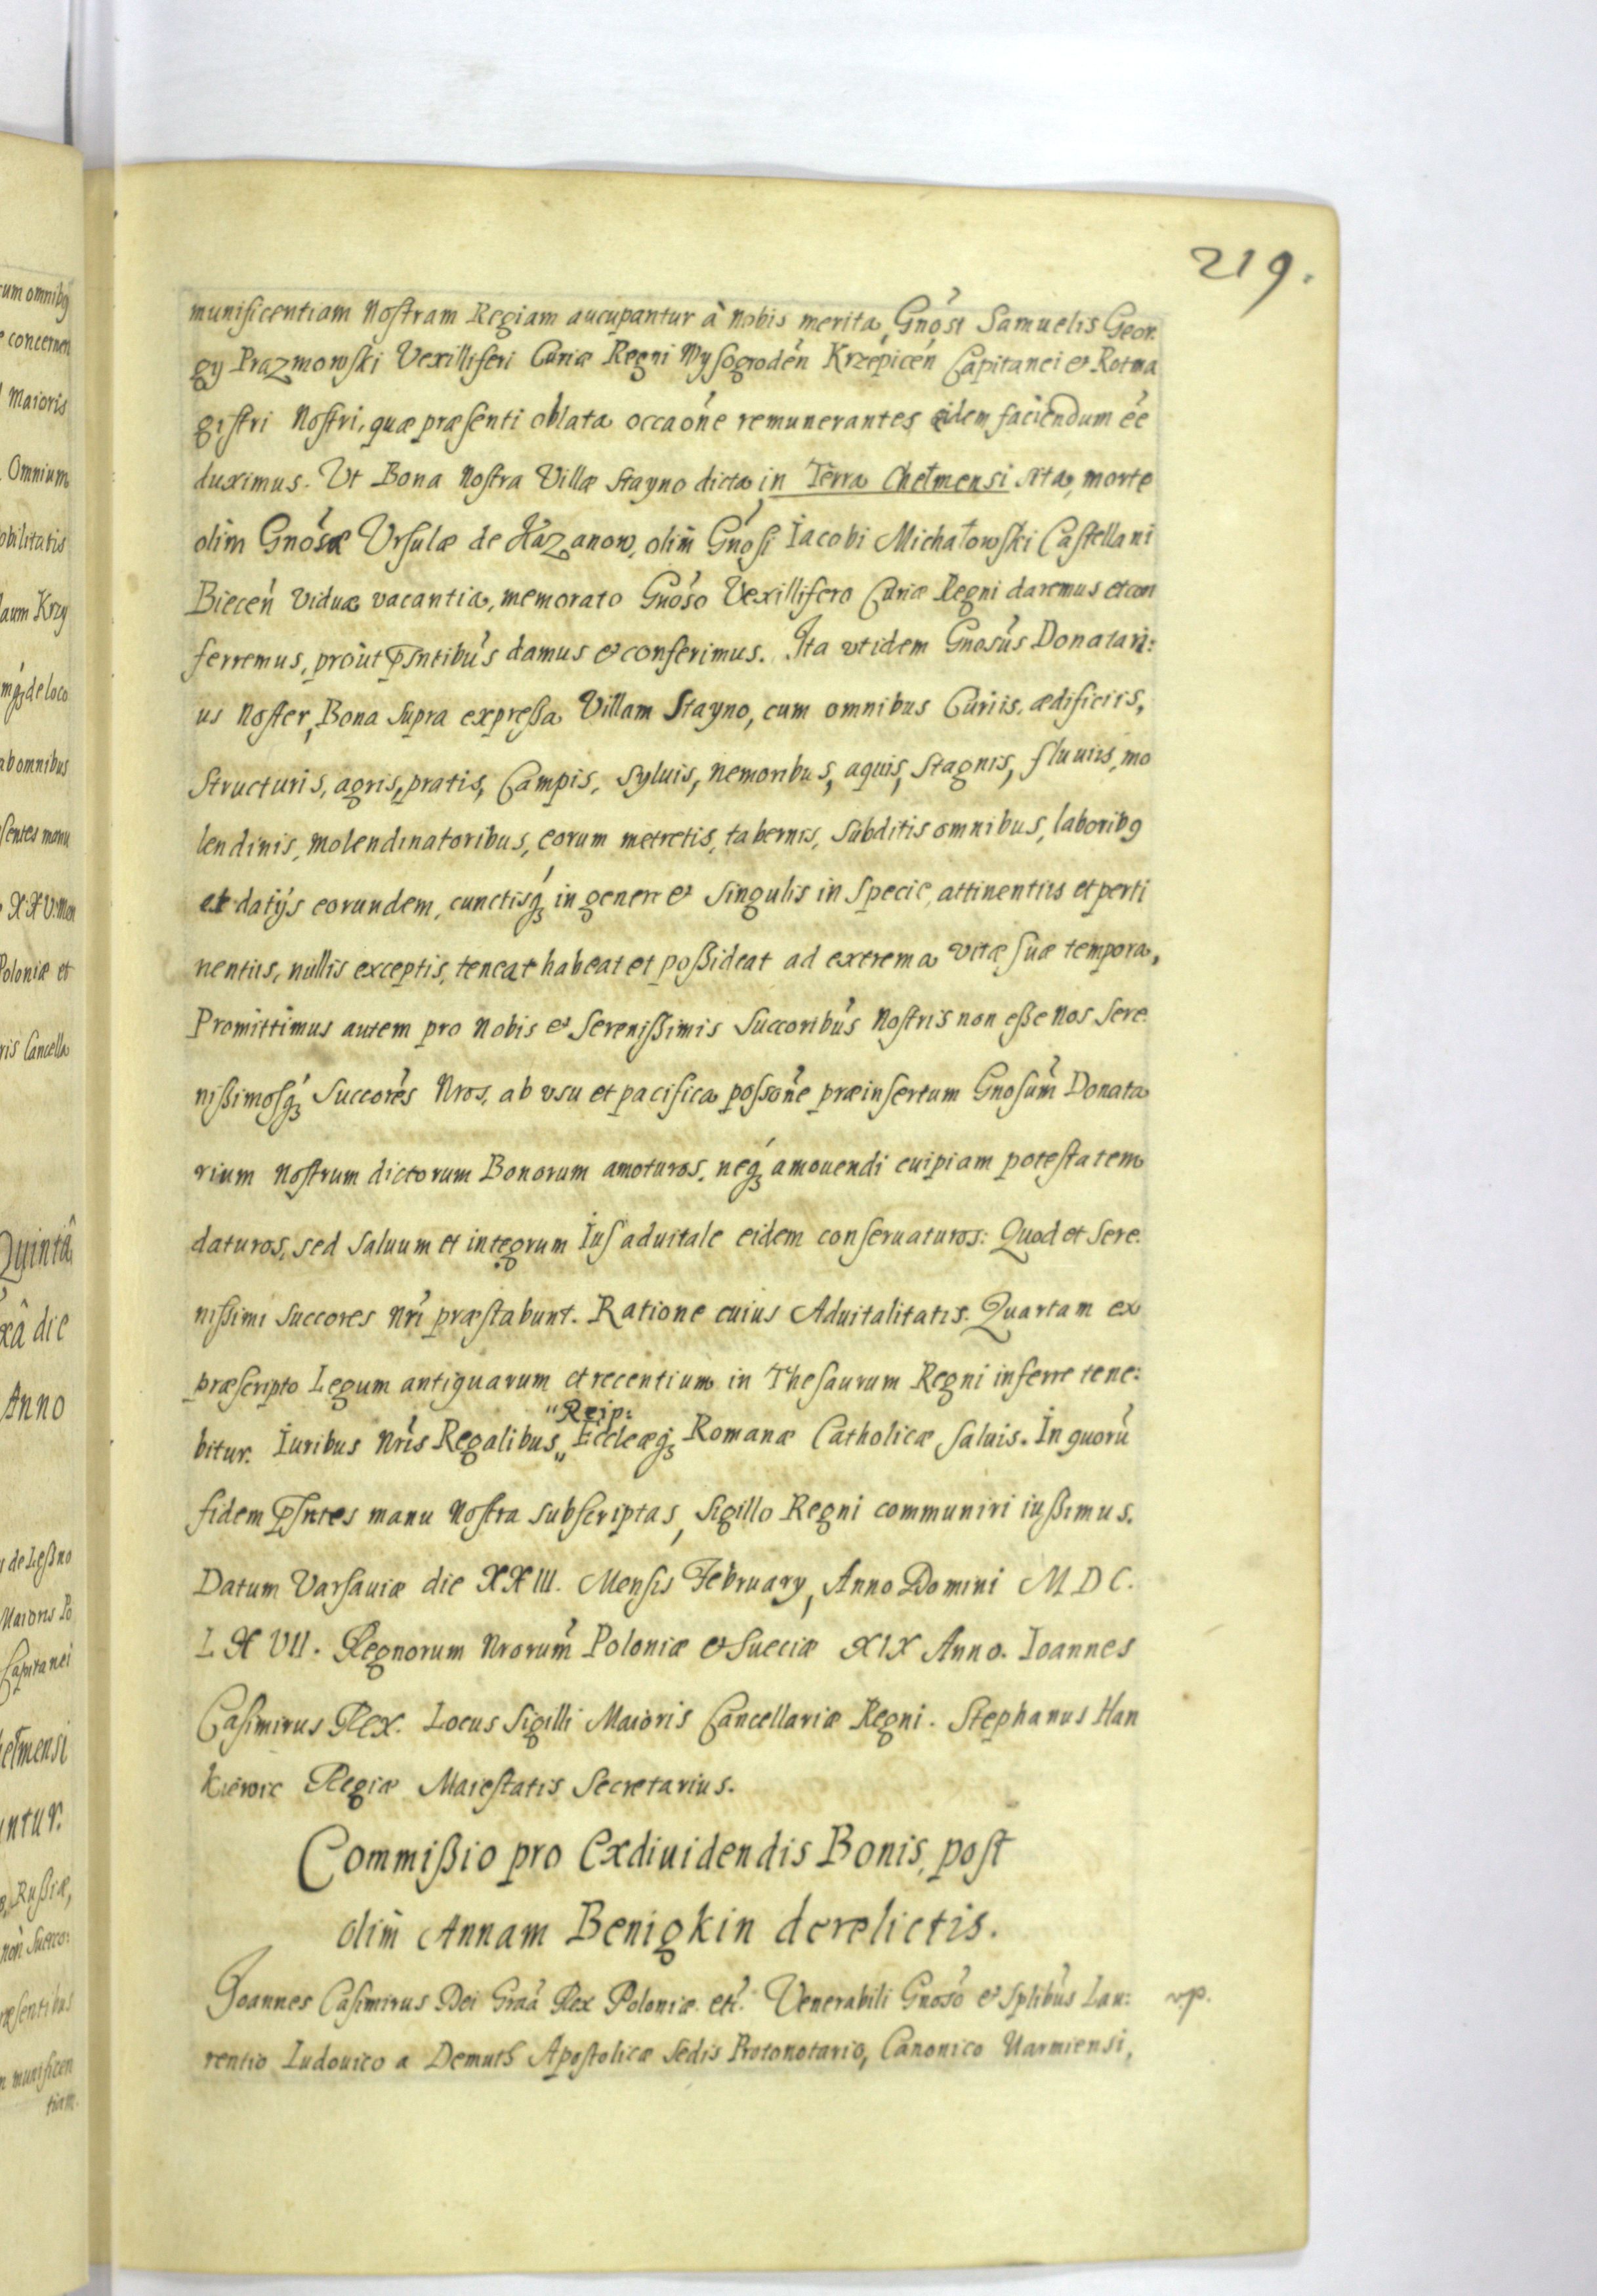 219.
munificentiam Nostram Regiam aucupantur à nobis merita, Gnosi Samuelis Geor:
gy Prazmowski Vexilliferi Curiæ Regni Wysogroden Krzepicen Capitanei et Rotma
gistri Nostri, quæ præsenti oblata occaone remunerantes eidem faciendum ee
duximus. Vt Bona Nostra Villæ Stayno dicta in Terra Chełmensi sita, morte
olim Gnosæ Vrsulæ de Kazanow, olim Gnosi Iacobi Michałowski Castellani
Biecen Viduæ vacantia, memorato Gnoso Vexillifero Curiæ Regni daremus et con
ferremus, prout Psntibus damus et conferimus. Ita vt idem Gnosus Donatari:
us Noster, Bona supra expreßa Villam Stayno, cum omnibus Curiis, ædificiis,
structuris, agris, pratis, Campis, syluis, nemoribus, aquis, stagnis, fluuiis, mo
lendinis, molendinatoribus, eorum metretis, tabernis, subditis omnibus, laboribus
et datijs eorundem, cunctisque in genere et singulis in specie, attinentiis et perti
nentiis, nullis exceptis, teneat habeat et poßideat ad extrema vitæ suæ tempora,
Promittimus autem pro Nobis et Serenißimis Succoribus Nostris non eße Nos Sere
nißimosque Succores Nros, ab vsu et pacifica possone præinsertum Gnosum Donata
rium Nostrum dictorum Bonorum amoturos, neque amouendi cuipiam potestatem
daturos, sed saluum et integrum Ius aduitale eidem conseruaturos: Quod et Sere:
nißimi Succores Nri præstabunt. Ratione cuius Aduitalitatis Quartam ex
præscripto Legum antiquarum et recentium in Thesaurum Regni inferre tene:
" Reip:
bitur. Iuribus Nris Regalibus,, Eccleæque Romanæ Catholicæ saluis. In quoru
fidem Psntes manu Nostra subscriptas, Sigillo Regni communiri iußimus.
Datum Varsauiæ die XXIII. Mensis February, Anno Domini MDC.
LXVII. Regnorum Nrorum Poloniæ et Sueciæ XIX Anno. Ioannes
Casimirus Rex. Locus Sigilli Maioris Cancellariæ Regni. Stephanus Han
kiewic Regiæ Maiestatis Secretarius.
Commißio pro Exdiuidendis Bonis, post
olim Annam Benigkin derelictis.
Ioannes Casimirus Dei Graa Rex Poloniæ etc. Venerabili Gnoso et Splibus Lau:
vp.
rentio Ludouico a Demuth Apostolicæ Sedis Protonotario, Canonico Varmiensi,